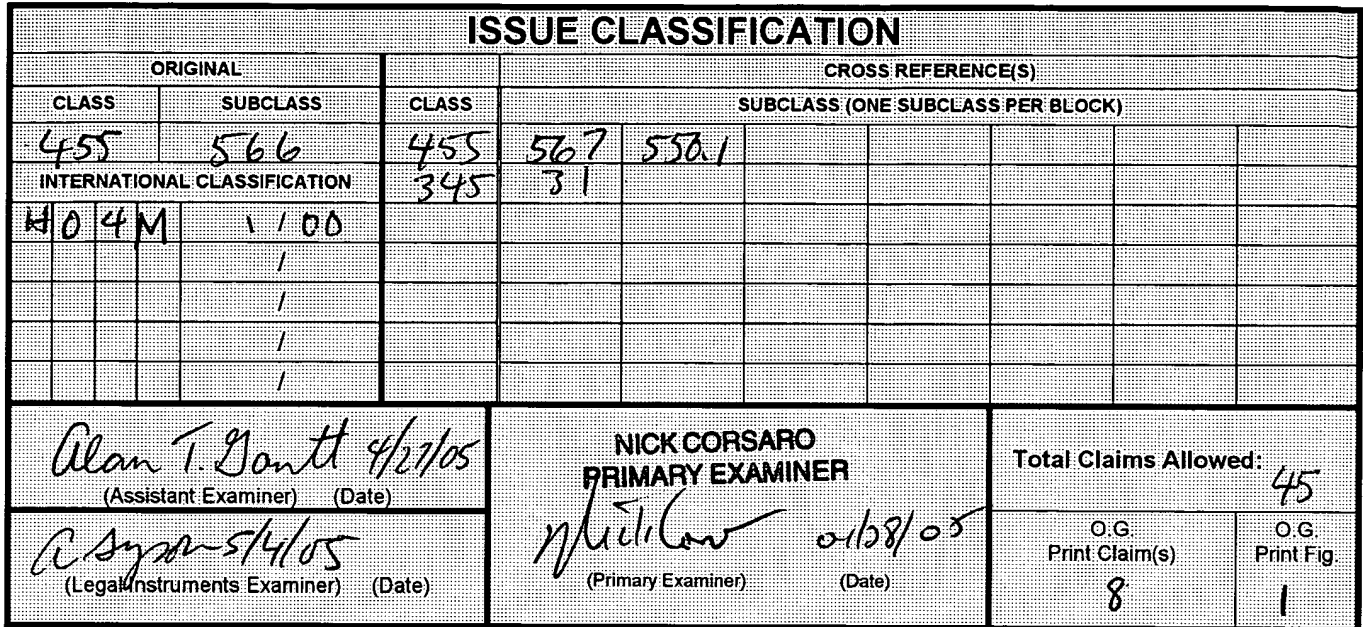 ISSUE CLASSIFICATION
ORIGINAL CROSS REFERENCE(S)
CLASS SUBCLASS CLASS SUBCLASS (ONE SUBCLASS PER BLOCK)
455 566 455 567 550.1
INTERNATIONAL CLASSIFICATION 345 31
H 0 4 M 1 / 00
/
/
/
/
Alan T. Gantt 4/27/05
(Assistant Examiner) (Date)
A 5/4/05
(Legal Instruments Examiner) (Date)
NICK CORSARO
PRIMARY EXAMINER
(Primary Examiner) (Date)
Total Claims Allowed:
45
O.G.
Print Claim(s)
8
O.G.
Print Fig.
1